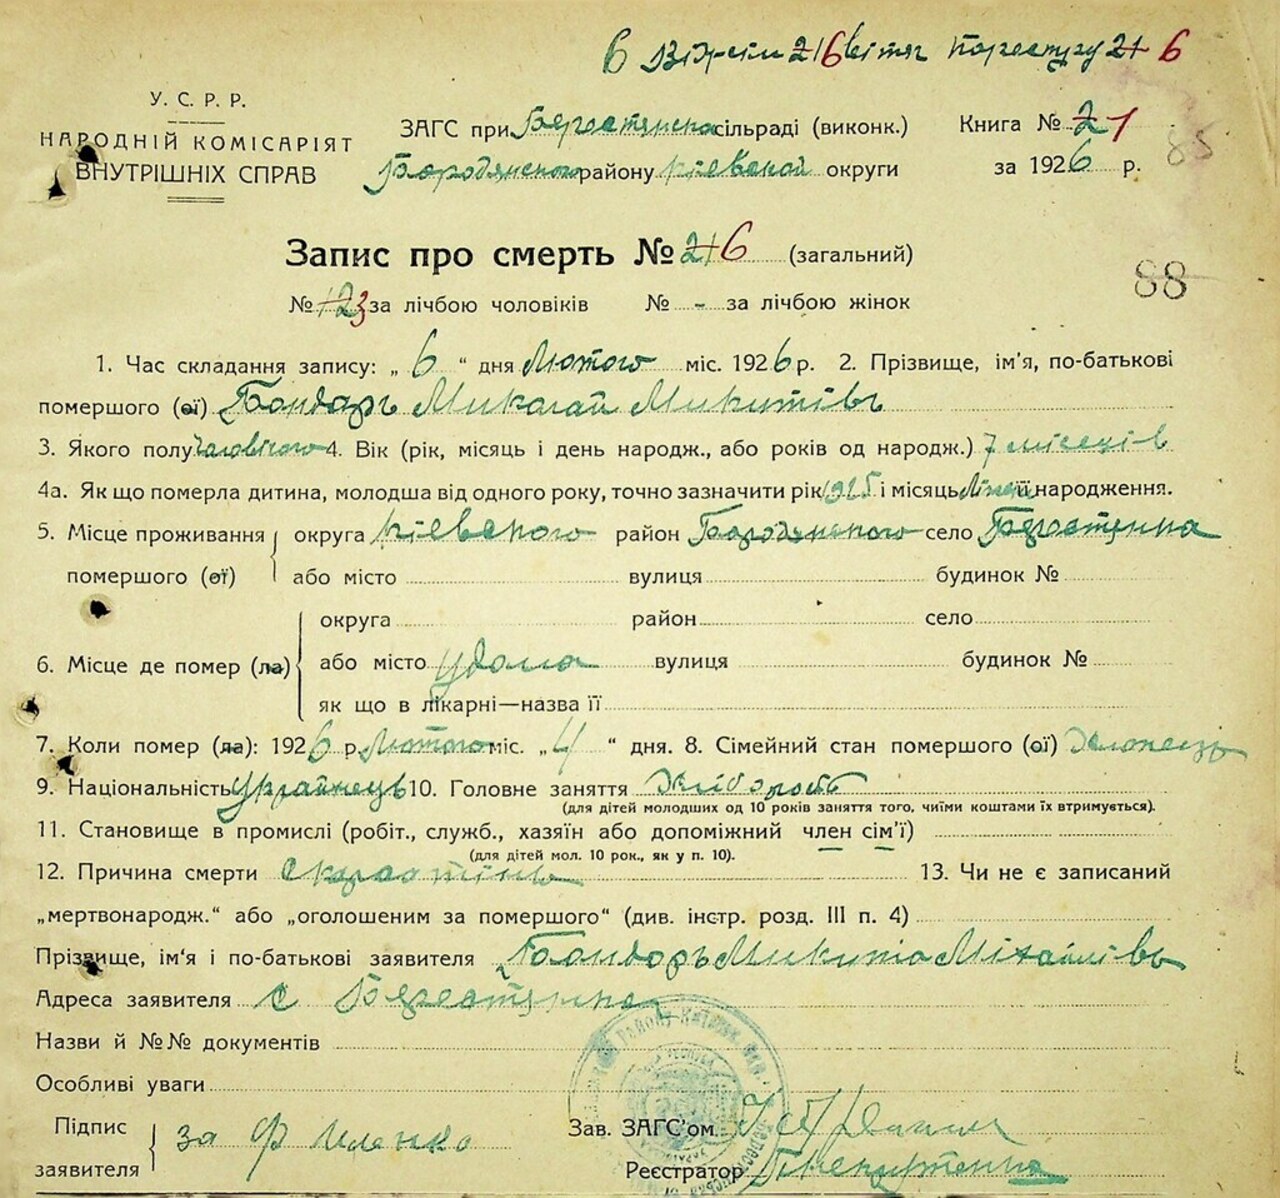 6
У. С. Р. Р.
НАРОДНІЙ КОМІСАРІЯТ
ВНУТРІШНІХ СПРАВ
ЗАГС при сільраді (виконк.)
Бородянского району Кіевской округи
Книга № 2 1
за 1926 р.
85
Запис про смерть № 21 6 (загальний)
№ 12 3 за лічбою чоловіків № - за лічбою жінок
88
1. Час складання запису: „ 6 “ дня Лютого міс. 1926 р. 2. Прізвище, ім’я, по-батькові
помершого (ої) Бондарь Микита Микитівъ
3. Якого полу чоловічого 4. Вік (рік, місяць і день народж., або років од народж.) 7 місеців
4а. Як що померла дитина, молодша від одного року, точно зазначити рік 1925 і місяць її народження.
5. Місце проживання округа Кіевского район Бородянского село
помершого (ої) або місто вулиця будинок №
округа район село
6. Місце де помер (ла) або місто удома вулиця будинок №
як що в лікарні—назва її
7. Коли помер (ла): 1926 р. Лютого міс. „ 4 “ дня. 8. Сімейний стан помершого (ої)
9. Національність Українець 10. Головне заняття Хлібороб
(для дітей молодших од 10 років заняття того, чиїми коштами їх втримується).
11. Становище в промислі (робіт., служб., хазяїн або допоміжний член сім’ї)
(для дітей мол. 10 рок., як у п. 10).
12. Причина смерти 13. Чи не є записаний
„мертвонародж.“ або „оголошеним за помершого“ (див. інстр. розд. III п. 4)
Прізвище, ім’я і по-батькові заявителя Бондарь Микита Міхайлівъ
Адреса заявителя с
Назви й №№ документів
Особливі уваги
Підпис
заявителя за Ф Иленко
Зав. ЗАГС’ом
Реєстратор